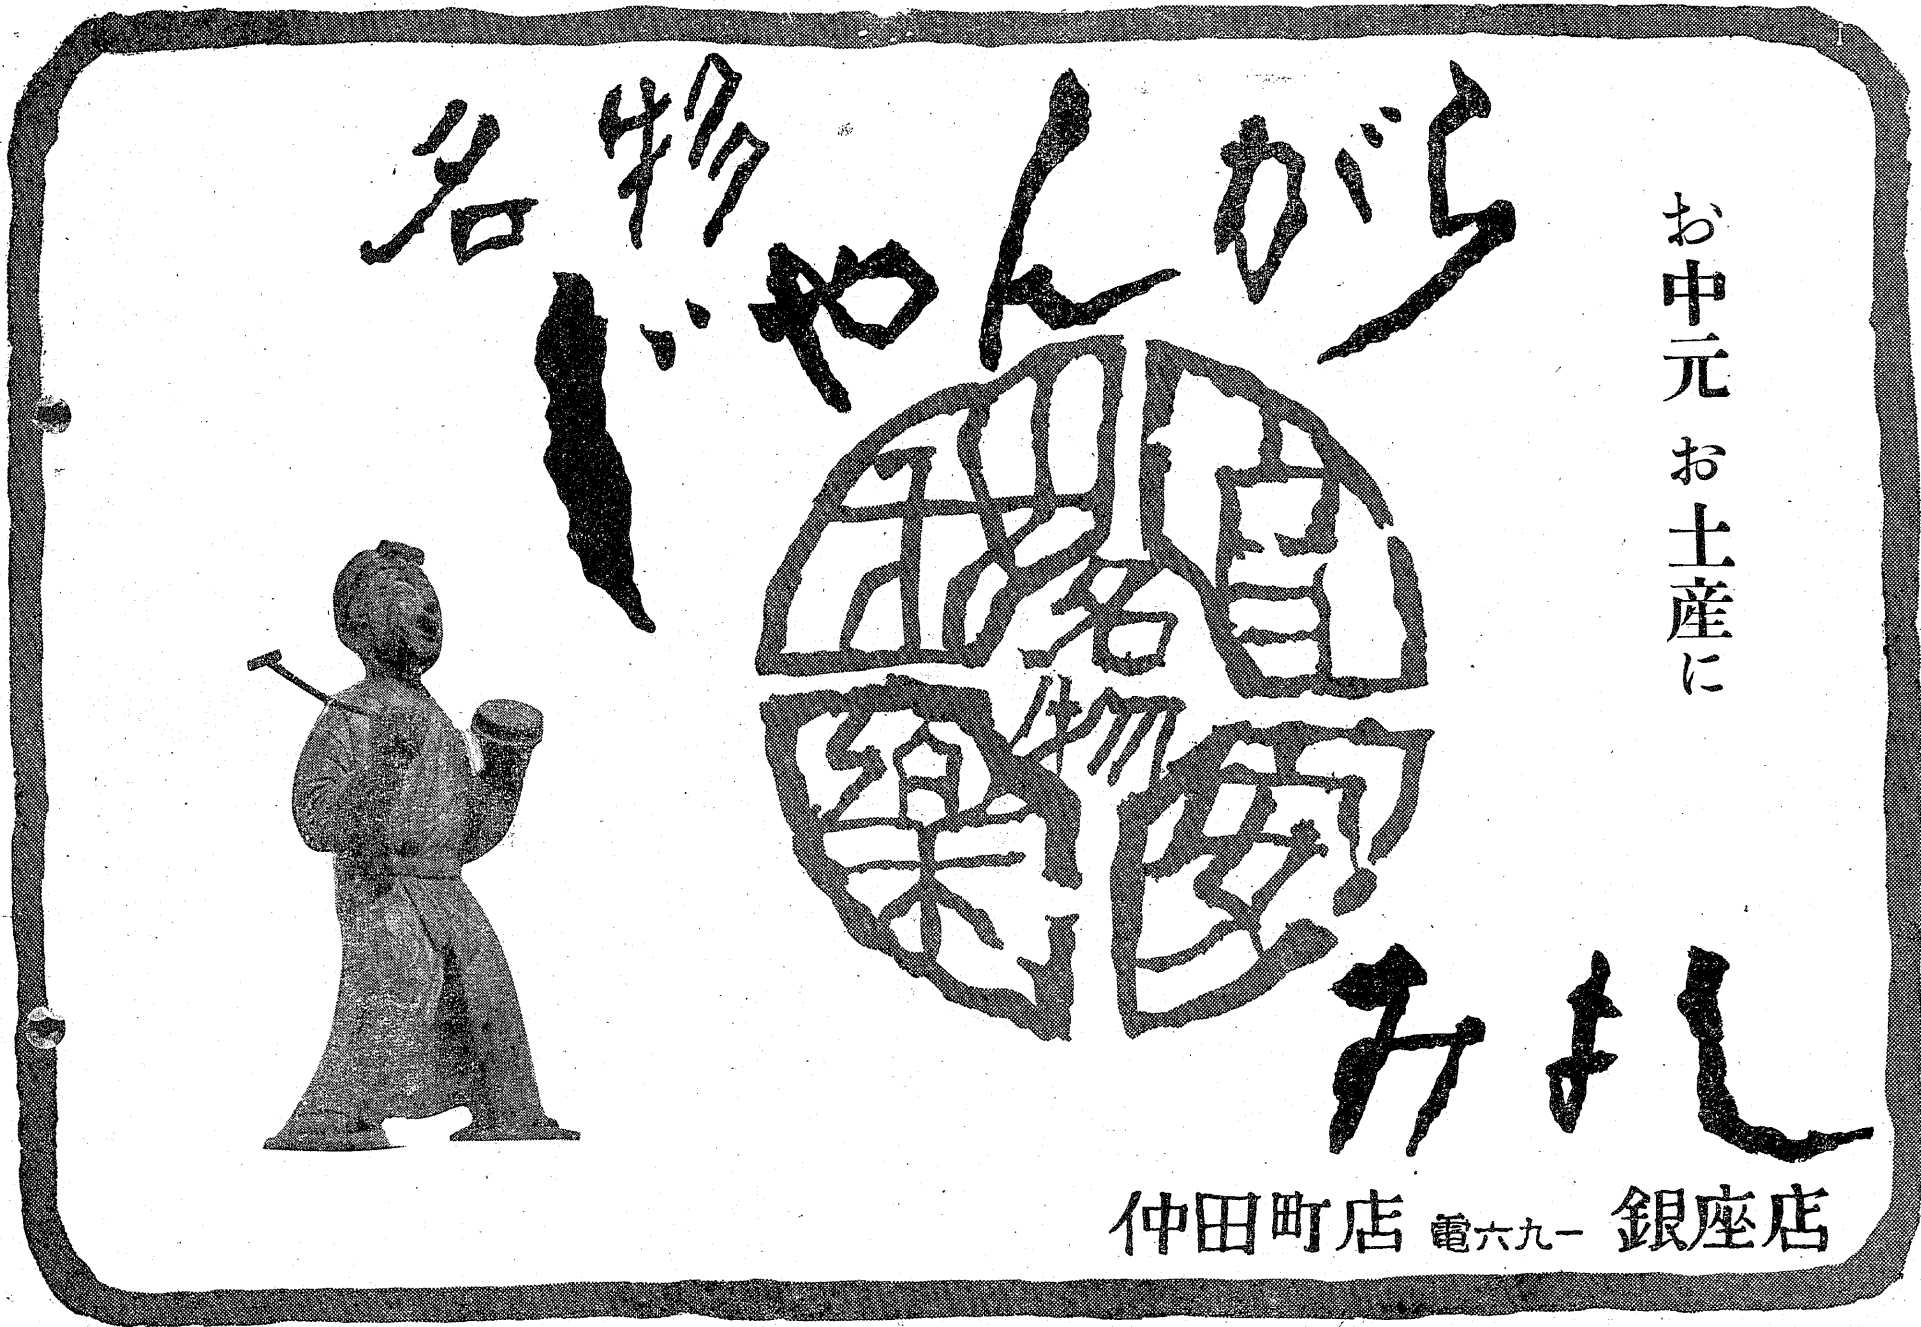 名物
じゃんがら
お中元 お土産に
名物
みよし
仲田町店 電六九一 銀座店